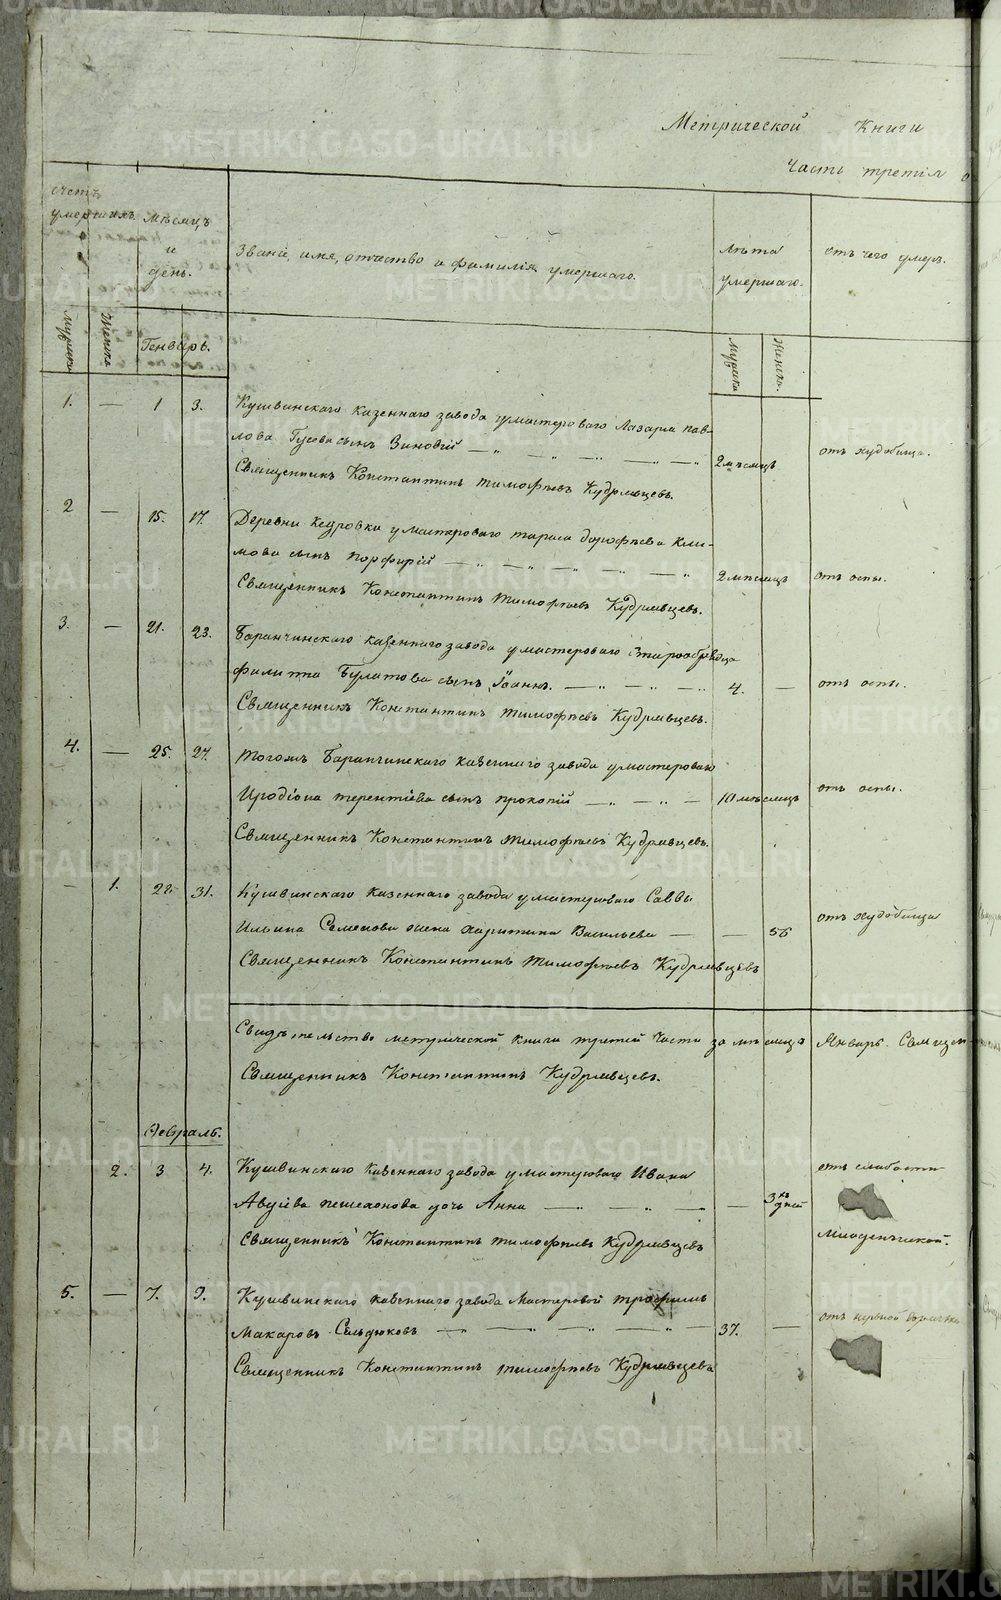 Метрической Книги
Часть третія о
счетъ умершихъ.
Мѣсяцъ и день.
Званіе, имя, отчество и фамилія умершаго.
Лѣта умершаго.
отъ чего умеръ.
Мужска
Женска
Генварь.
Мужска
Женска.
1. — 1 3. Кушвинскаго казеннаго завода умастероваго Лазаря Пав-
лова Гусева сынъ Зиновій — „ — „ — „ — „ — „ 2 мѣсяцъ отъ худобища.
Священникъ Константинъ Тимофѣевъ Кудрявцевъ.
2 — 15. 17. Деревни Кедровки умастероваго Тараса Дорофѣева Кли-
мова сынъ Порфирій — „ — „ — „ — „ — „ 2 мѣсяцъ отъ оспы.
Священникъ Константинъ Тимофѣевъ Кудрявцевъ.
3. — 21. 23. Баранчинскаго казеннаго завода умастероваго Старообрядца
Филипа Булатова сынъ Іоаннъ. — „ — „ — „ 4. — отъ оспы.
Священникъ Константинъ Тимофѣевъ Кудрявцевъ.
4. — 25. 27. Тогожъ Баранчинскаго казеннаго завода умастероваго
Иродіона Терентіева сынъ Прокопій — „ — „ — 10 мѣсяцъ отъ оспы.
Священникъ Константинъ Тимофѣевъ Кудрявцевъ.
— 1. 31. Кушвинскаго казеннаго завода умастероваго Саввы
Ильина Семенова жена Харитина Васильева — — 56 отъ худобища
Священникъ Константинъ Тимофѣевъ Кудрявцевъ
Свидѣтельство метрической книги третей части за мѣсяцъ Январь. Священ
Священникъ Константинъ Кудрявцевъ.
Февраль.
2. 3 4. Кушвинскаго казеннаго завода умастероваго Ивана отъ слабости
Авдіева Пешехонова дочь Анна — „ — „ — „ — 3хъ дней
Священникъ Константинъ Тимофѣевъ Кудрявцевъ младенческой.
5. — 7. 9. Кушвинскаго казеннаго завода Мастеровой Трофимъ
Макаровъ Сельдюковъ — „ — „ — „ — „ 37. — отъ нервной горячки
Священникъ Константинъ Тимофѣевъ Кудрявцевъ
METRIKI.GASO-URAL.RU